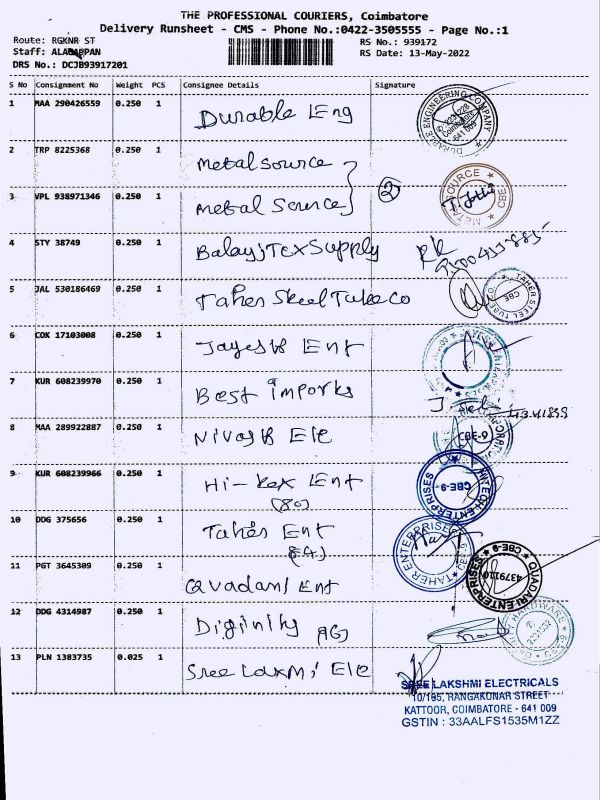 THE PROFESSIONAL COURIERS, Coimbatore
Delivery Runsheet - CMS - Phone No.:0422-3505555 - Page No.:1
Route: RGKNR ST RS No.: 939172
Staff: ALAGAPPAN RS Date: 13-May-2022
DRS No.: DCJB93917201
S No Consignment No Weight PCS Consignee Details Signature
1 MAA 290426559 0.250 1 Durable Eng
DURABLE ENGINEERING COMPANY
641 009
2 TRP 8225368 0.250 1 Metal Source
3 VPL 938971346 0.250 1 Metal Source 2
METAL SOURCE CBE
4 STY 38749 0.250 1 Balaji Tex Supply
5 JAL 530186469 0.250 1 Taher Steel Tube Co
TAHER STEEL TUBE CO CBE
6 COK 17103008 0.250 1 Jayesh Ent
7 KUR 608239970 0.250 1 Best Imports
8 MAA 289922887 0.250 1 Nivash Ele
CBE-9
9 KUR 608239966 0.250 1 Hi-Tex Ent
(80)
HITECH ENTERPRISES CBE-9
10 DDG 375656 0.250 1 Taher Ent
TAHER ENTERPRISES
11 PGT 3645309 0.250 1 Quadari Ent
QUADARI ENTERPRISES CBE-9 4379110
12 DDG 4314987 0.250 1 Diginity
HARDWARE
13 PLN 1383735 0.025 1 Sree Laxmi Ele
SREE LAKSHMI ELECTRICALS
10/195, RANGAKONAR STREET
KATTOOR, COIMBATORE - 641 009
GSTIN : 33AALFS1535M1ZZ